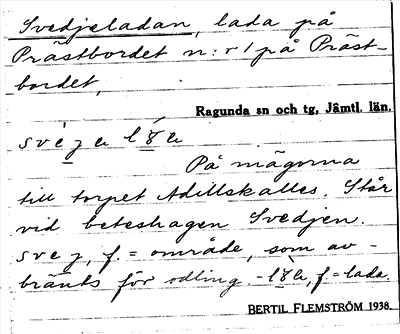 Svedjeladan, lada på
Prästbordet n:r 1 på Präst-
bordet,
Ragunda sn och tg, Jämtl. län.
På mägorna
till torpet Adillskalles. Står
vid beteshagen Svedjen.
svej, f. = område, som av-
bränts för odling - f. = lada.
BERTIL FLEMSTRÖM 1938.